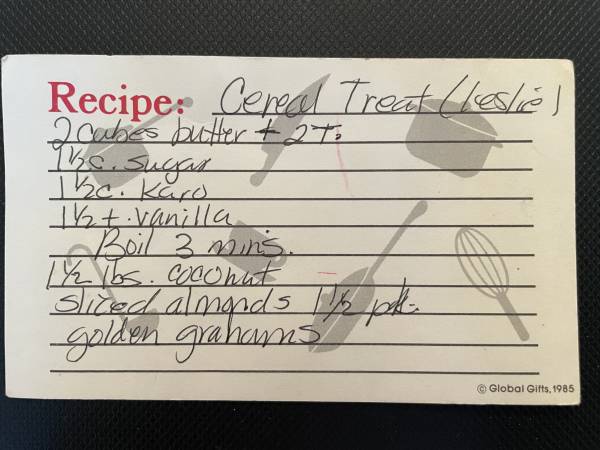 Recipe: Cereal Treat (Leslie)
2 cubes butter + 2 T.
1 1/2 c. sugar
1 1/2 c. Karo
1 1/2 t. vanilla
Boil 3 mins.
1 1/2 lbs. coconut
sliced almonds 1 1/2 pk.
golden grahams
© Global Gifts, 1985